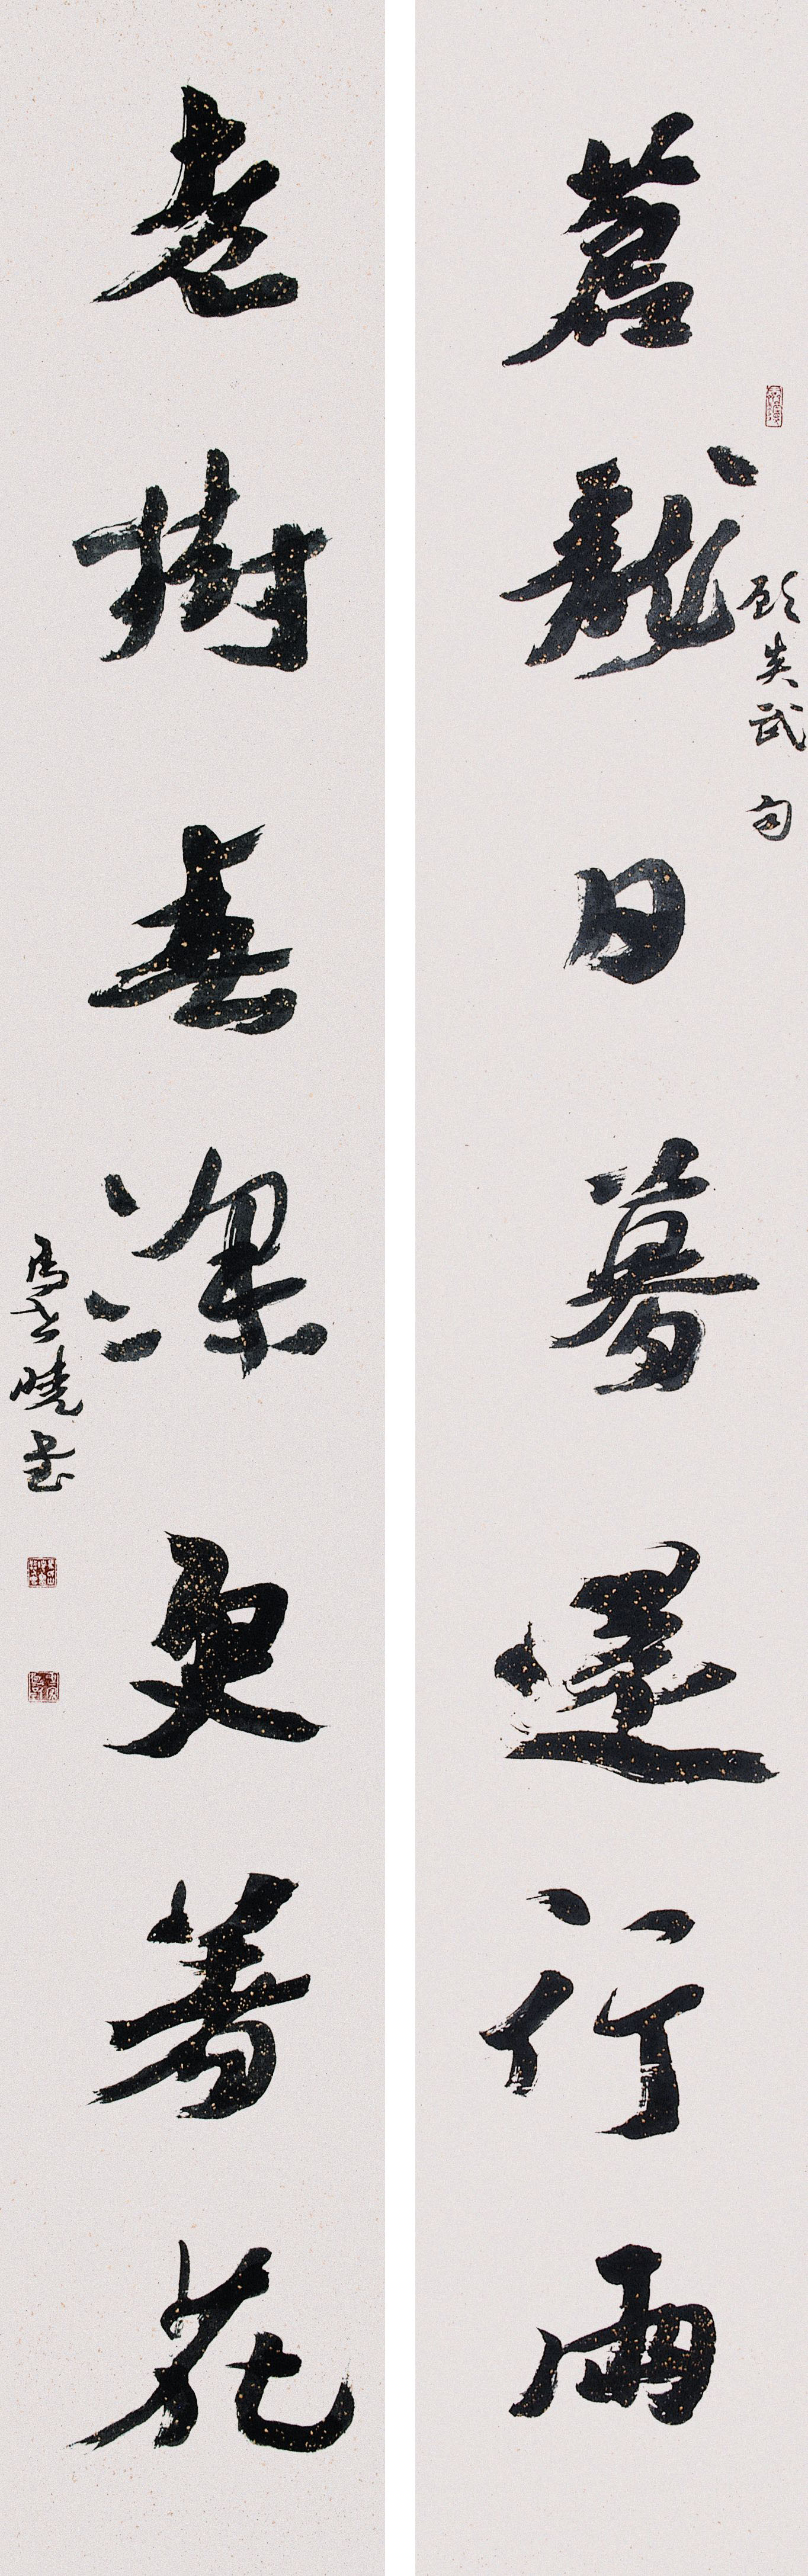 蒼龍日暮還行雨
顧炎武句
老樹春深更著花
馬世曉書